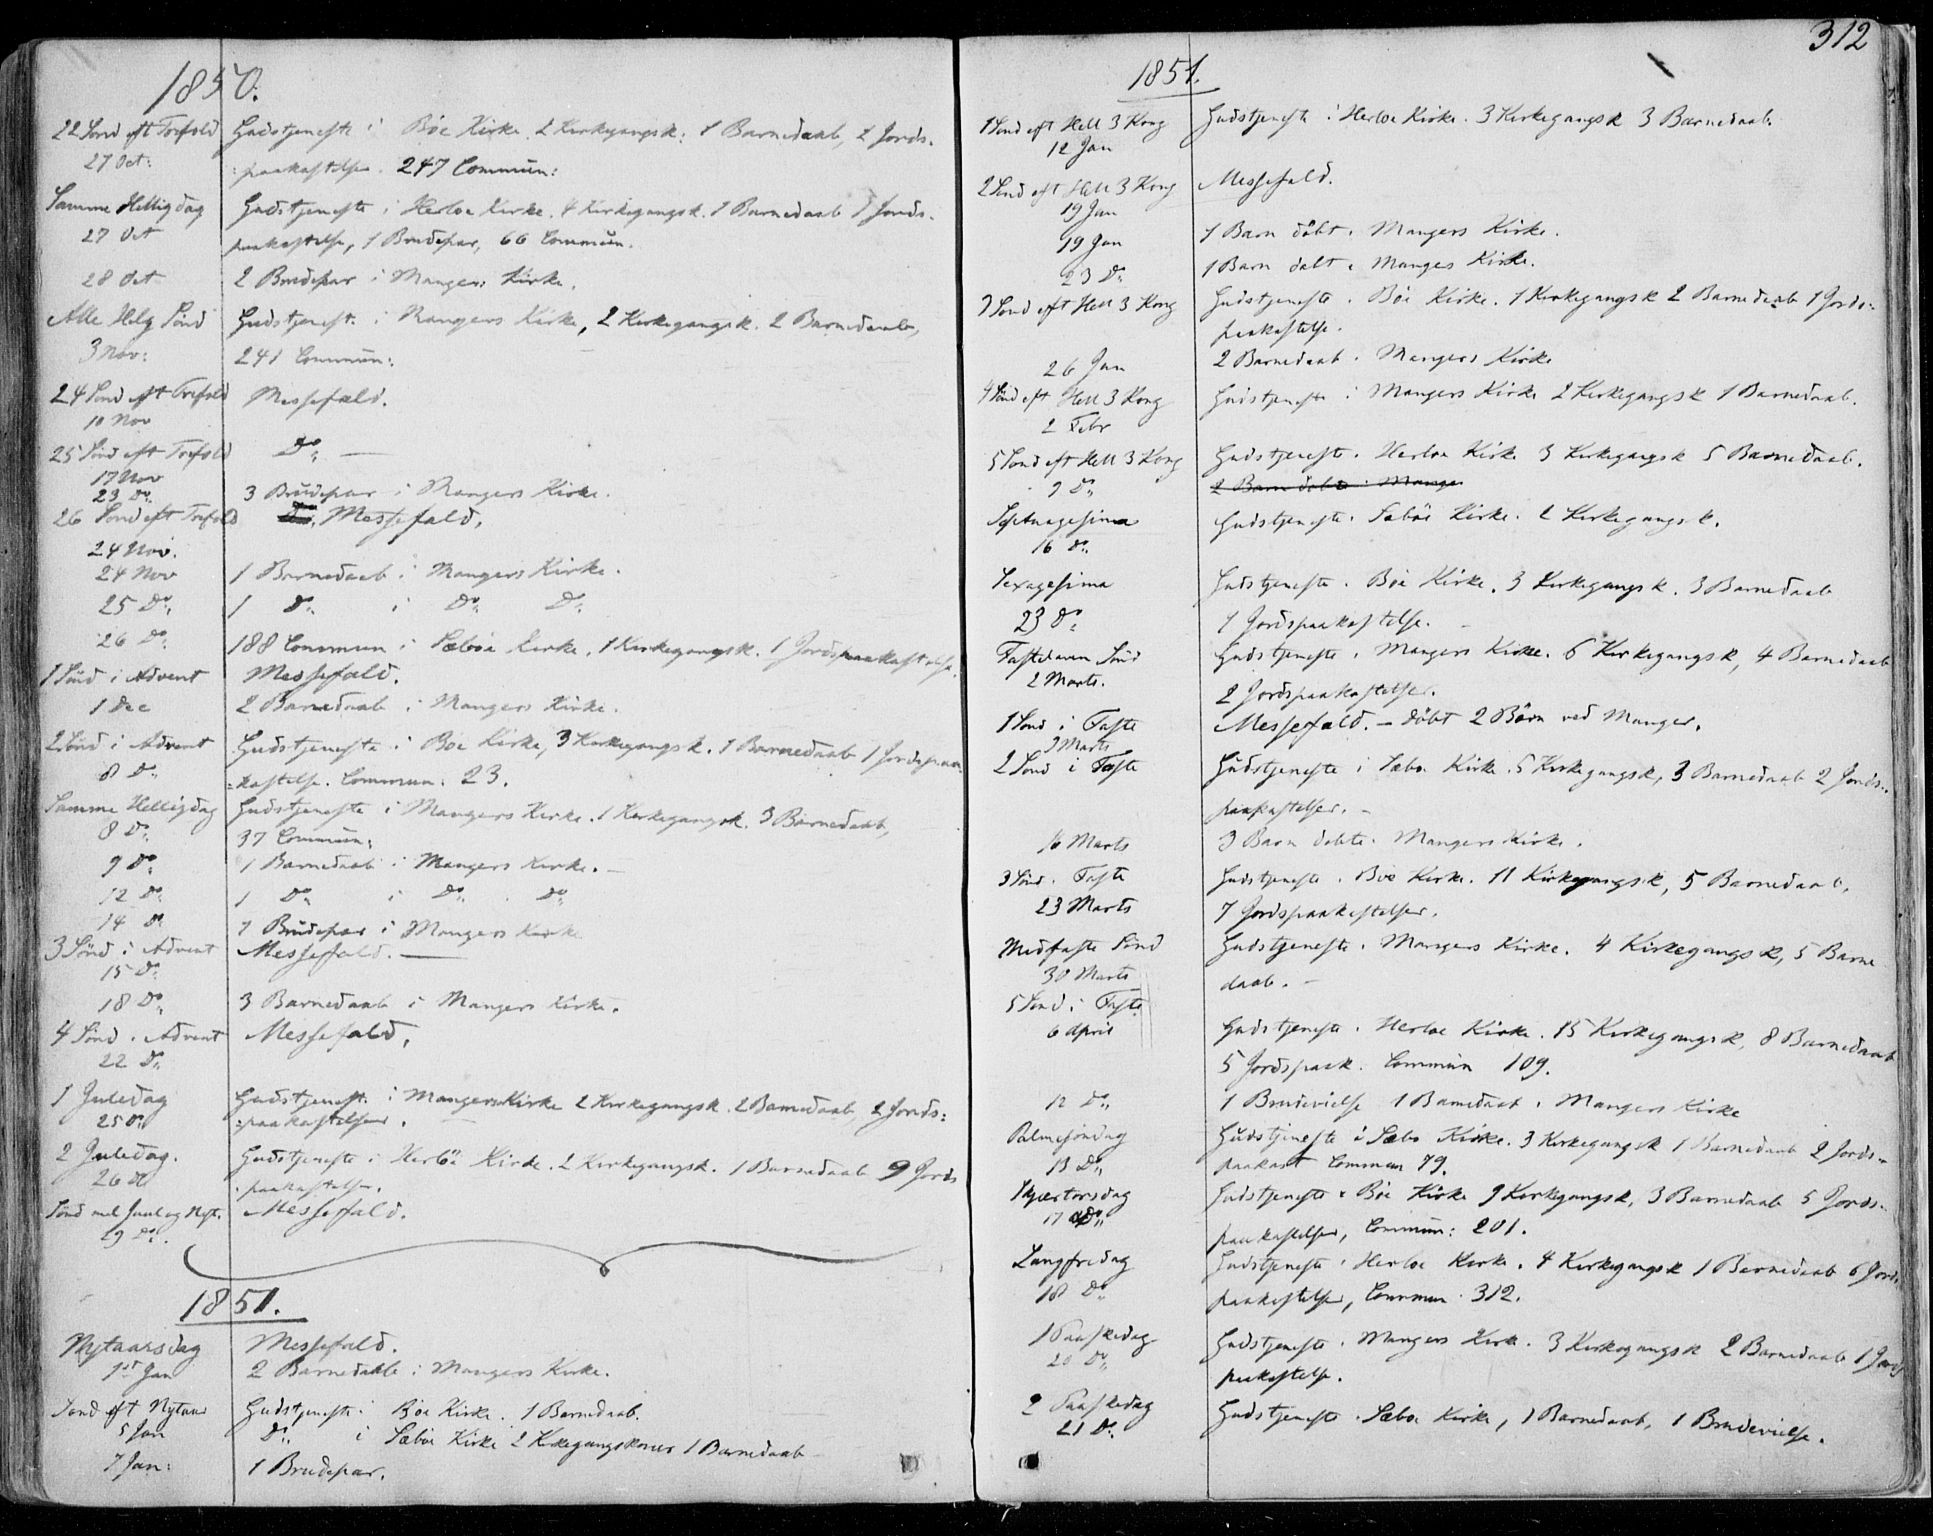 1850.
22 Sønd eft Trefold Gudstjeneste i Bøe Kirke. 2 Kirkegangsk: 1 Barnedaab, 2 Jords-
27 Oct: paakastelse. 247 Commun:
Samme Hellig dag Gudstjeneste i Herløe Kirke. 4 Kirkegangsk. 1 Barnedaab 1 Jords-
27 Oct paakastelse, 1 Brudepar, 66 Commun.
28 Oct 2 Brudepar i Mangers Kirke.
Alle Helg Sønd Gudstjenest. i Mangers Kirke, 2 Kirkegangsk. 2 Barnedaab,
3 Nov: 241 Commun:
24 Sønd eft Trefold Messefald.
10 Nov
25 Sønd eft Trefold Do. —
17 Nov
23 Do. 3 Brudepar i Mangers Kirke.
26 Sønd eft Trefold Messefald.
24 Nov.
24 Nov 1 Barnedaab i Mangers Kirke.
25 Do. 1 Do. i Do. Do.
26 Do. 188 Commun i Sæbøe Kirke, 1 Kirkegangsk. 1 Jordspaakastelse.
1 Sønd i Advent Messefald.
1 Dec 2 Barnedaab i Mangers Kirke.
2 Sønd i Advent Gudstjeneste i Bøe Kirke, 3 Kirkegangsk. 1 Barnedaab 1 Jordspaa-
8 Do. =kastelse. Commun. 23.
Samme Helligdag Gudstjeneste i Mangers Kirke. 1 Kirkegangsk. 3 Barnedaab,
8 Do. 37 Commun:
9 Do. 1 Barnedaab i Mangers Kirke. —
12 Do. 1 Do. i Do. Do.
14 Do. 1 Brudepar i Mangers Kirke
3 Sønd i Advent Messefald. —
15 Do.
18 Do. 3 Barnedaab i Mangers Kirke.
4 Sønd i Advent Messefald.
22 Do.
1 Juledag Gudstjenest: i Mangers Kirke 2 Kirkegangsk. 2 Barnedaab, 2 Jords=
25 Do :paakastelser. —
2 Juledag. Gudstjeneste i Herløe Kirke. 2 Kirkegangsk. 1 Barnedaab 9 Jords
26 Do :paakastelser.
Sønd mel Juul og Nyt. Messefald.
29 Do.
1851.
Nytaarsdag Messefald.
1st Jan 2 Barnedaab i Mangers Kirke.
Sønd eft Nytaar Gudstjeneste i Bøe Kirke. 1 Barnedaab.
5 Jan Do. i Sæbøe Kirke 2 Kirkegangskoner 1 Barnedaab
7 Jan: 1 Brudepar.
312
1851.
1 Sønd eft Hell 3 Kong Gudstjeneste i Herløe Kirke. 3 Kirkegangsk 3 Barnedaab.
12 Jan
2 Sønd eft Hell 3 Kong Messefald.
19 Jan
19 Jan 1 Barn døbt i Mangers Kirke.
23 Do. 1 Barn døbt i Mangers Kirke.
3 Sønd eft Hell 3 Kong Gudstjeneste i Bøe Kirke. 1 Kirkegangsk 2 Barnedaab 1 Jords-
paakastelse.
26 Jan 2 Barnedaab i Mangers Kirke
4 Sønd eft Hell 3 Kong Gudstjeneste i Mangers Kirke 2 Kirkegangsk 1 Barnedaab.
2 Febr
5 Sønd eft Hell 3 Kong Gudstjeneste i Herløe Kirke 3 Kirkegangsk 5 Barnedaab.
9 Do. 2 Barn døbte i Manger
Septuagesima Gudstjeneste i Sæbøe Kirke. 2 Kirkegangsk.
16 Do.
Sexagesima Gudstjeneste i Bøe Kirke. 3 Kirkegangsk. 3 Barnedaab
23 Do. 1 Jordspaakastelse. —
Fastelavn Sønd Gudstjeneste i Mangers Kirke. 6 Kirkegangsk, 4 Barnedaab
2 Marts. 2 Jordspaakastelser.
1 Sønd i Faste Messefald. — døbt 2 Børn ved Manger.
9 Marts
2 Sønd i Faste Gudstjeneste i Sæbø Kirke. 5 Kirkegangsk, 3 Barnedaab 2 Jords-
paakastelser. —
16 Marts 3 Barn døbte i Mangers Kirke.
3 Sønd i Faste Gudstjeneste i Bøe Kirke. 11 Kirkegangsk, 5 Barnedaab,
23 Marts 7 Jordspaakastelser.
Midfaste Sønd Gudstjeneste i Mangers Kirke. 4 Kirkegangsk, 5 Barne
30 Marts daab. —
5 Sønd i Faste
6 April Gudstjeneste i Herløe Kirke. 15 Kirkegangsk, 8 Barnedaab
5 Jordspaak. Commun 109.
12 Do. 1 Brudevielse 1 Barnedaab i Mangers Kirke
Palmesøndag Gudstjeneste i Sæbø Kirke. 3 Kirkegangsk 1 Barnedaab 2 Jords-
13 Do. paakast Commun 79.
Skjærtorsdag Gudstjeneste i Bøe Kirke 9 Kirkegangsk, 3 Barnedaab 5 Jords-
17 Do. paakastelser, Commun: 201.
Langfredag Gudstjeneste i Herløe Kirke. 4 Kirkegangsk 1 Barnedaab 6 Jords
18 Do. paakastelser, Commun. 312.
1 Paaskedag Gudstjeneste i Mangers Kirke. 3 Kirkegangsk 2 Barnedaab 1 Jords
20 Do. paakastelse.
2 Paaskedag Gudstjeneste i Sæbøe Kirke, 1 Barnedaab, 1 Brudevielse.
21 Do.